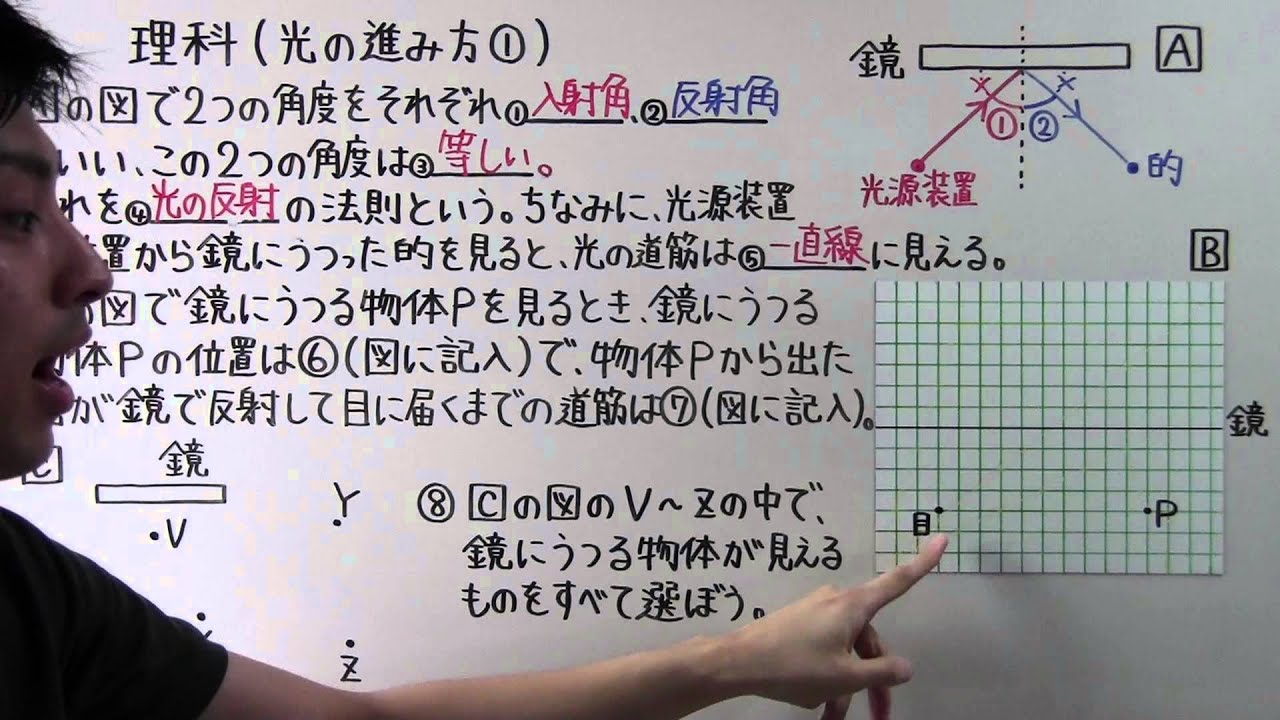 理科(光の進み方①)
の図で2つの角度をそれぞれ①入射角、②反射角
いい、この2つの角度は③等しい。
れを④光の反射の法則という。ちなみに、光源装置
置から鏡にうつった的を見ると、光の道筋は⑤一直線に見える。
図で鏡にうつる物体Pを見るとき、鏡にうつる
体Pの位置は⑥(図に記入)で、物体Pから出た
が鏡で反射して目に届くまでの道筋は⑦(図に記入)。
鏡
A
×
×
①
②
光源装置
的
B
鏡
目
P
C
鏡
V
Y
Z
⑧ Cの図のV~Zの中で、
鏡にうつる物体が見える
ものをすべて選ぼう。